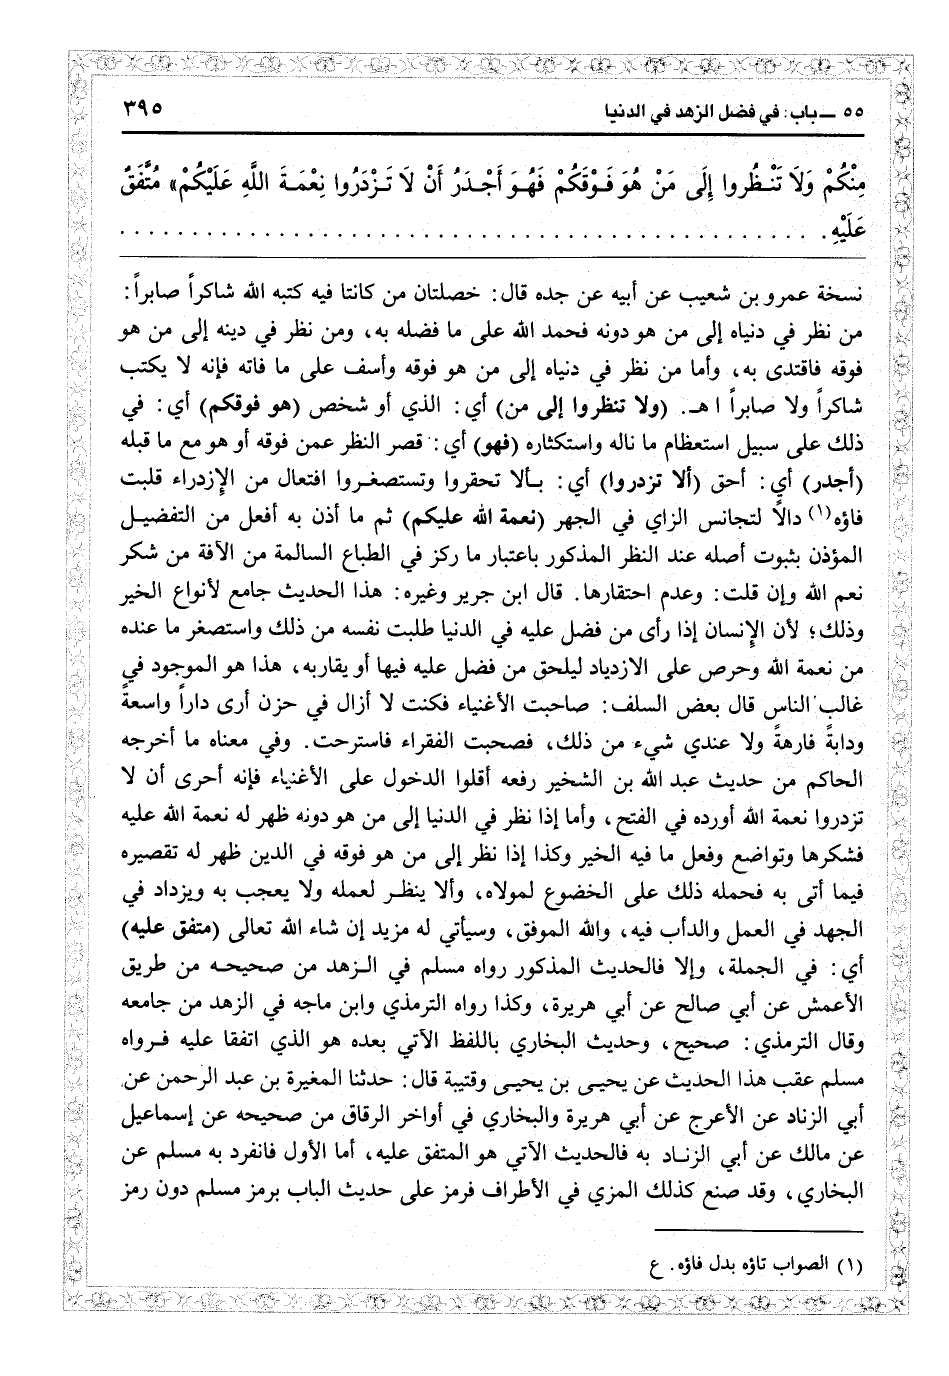 ٥٥ ــ باب: في فضل الزهد في الدنيا ٣٩٥
مِنْكُمْ وَلَا تَنْظُروا إِلَى مَنْ هُوَ فَوْقَكُمْ فَهُوَ أَجْدَرُ أَنْ لَا تَزْدَرُوا نِعْمَةَ اللَّهِ عَلَيْكُمْ» مُتَّفَقٌ
عَلَيْهِ. . . . . . . . . . . . . . . . . . . . . . . . . . . . . . . . . . . . . . . . . . . . . . . . . .
نسخة عمرو بن شعيب عن أبيه عن جده قال: خصلتان من كانتا فيه كتبه الله شاكراً صابراً:
من نظر في دنياه إلى من هو دونه فحمد الله على ما فضله به، ومن نظر في دينه إلى من هو
فوقه فاقتدى به، وأما من نظر في دنياه إلى من هو فوقه وأسف على ما فاته فإنه لا يكتب
شاكراً ولا صابراً ا هـ. (ولا تنظروا إلى من) أي: الذي أو شخص (هو فوقكم) أي: في
ذلك على سبيل استعظام ما ناله واستكثاره (فهو) أي: قصر النظر عمن فوقه أو هو مع ما قبله
(أجدر) أي: أحق (ألا تزدروا) أي: بألا تحقروا وتستصغروا افتعال من الإزدراء قلبت
فاؤه(١) دالاً لتجانس الزاي في الجهر (نعمة الله عليكم) ثم ما أذن به أفعل من التفضيل
المؤذن بثبوت أصله عند النظر المذكور باعتبار ما ركز في الطباع السالمة من الآفة من شكر
نعم الله وإن قلت: وعدم احتقارها. قال ابن جرير وغيره: هذا الحديث جامع لأنواع الخير
وذلك؛ لأن الإنسان إذا رأى من فضل عليه في الدنيا طلبت نفسه من ذلك واستصغر ما عنده
من نعمة الله وحرص على الازدياد ليلحق من فضل عليه فيها أو يقاربه، هذا هو الموجود في
غالب الناس قال بعض السلف: صاحبت الأغنياء فكنت لا أزال في حزن أرى داراً واسعة
ودابةً فارهةً ولا عندي شيء من ذلك، فصحبت الفقراء فاسترحت. وفي معناه ما أخرجه
الحاكم من حديث عبد الله بن الشخير رفعه أقلوا الدخول على الأغنياء فإنه أحرى أن لا
تزدروا نعمة الله أورده في الفتح، وأما إذا نظر في الدنيا إلى من هو دونه ظهر له نعمة الله عليه
فشكرها وتواضع وفعل ما فيه الخير وكذا إذا نظر إلى من هو فوقه في الدين ظهر له تقصيره
فيما أتى به فحمله ذلك على الخضوع لمولاه، وألا ينظر لعمله ولا يعجب به ويزداد في
الجهد في العمل والدأب فيه، والله الموفق، وسيأتي له مزيد إن شاء الله تعالى (متفق عليه)
أي: في الجملة، وإلا فالحديث المذكور رواه مسلم في الزهد من صحيحه من طريق
الأعمش عن أبي صالح عن أبي هريرة، وكذا رواه الترمذي وابن ماجه في الزهد من جامعه
وقال الترمذي: صحيح، وحديث البخاري باللفظ الآتي بعده هو الذي اتفقا عليه فرواه
مسلم عقب هذا الحديث عن يحيى بن يحيى وقتيبة قال: حدثنا المغيرة بن عبد الرحمن عن
أبي الزناد عن الأعرج عن أبي هريرة والبخاري في أواخر الرقاق من صحيحه عن إسماعيل
عن مالك عن أبي الزناد به فالحديث الآتي هو المتفق عليه، أما الأول فانفرد به مسلم عن
البخاري، وقد صنع كذلك المزي في الأطراف فرمز على حديث الباب برمز مسلم دون رمز
(١) الصواب تاؤه بدل فاؤه. ع